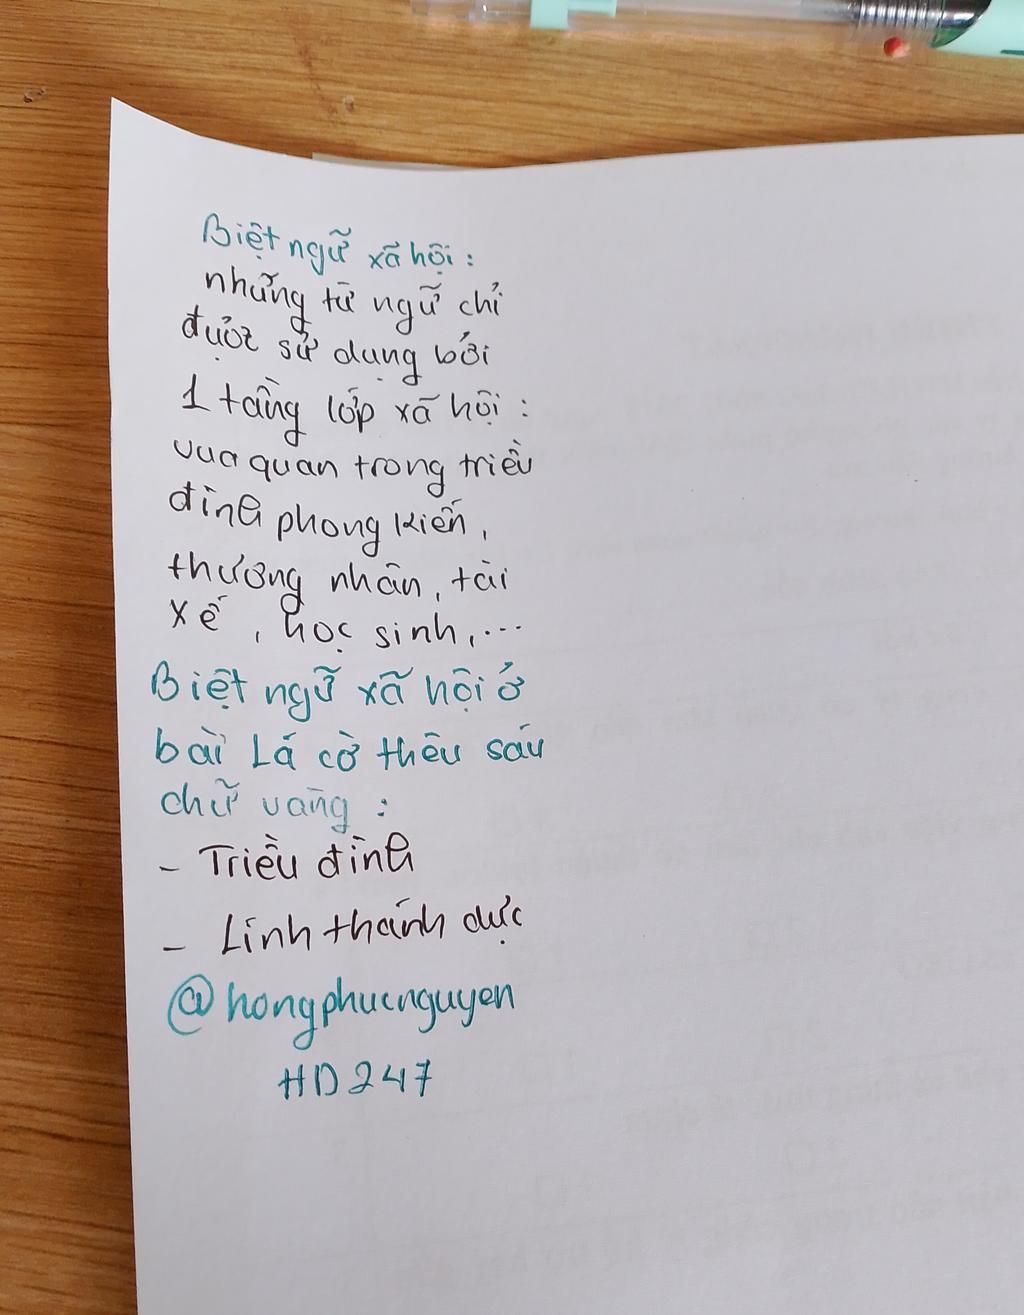 Biệt ngữ xã hội :
những từ ngữ chỉ
được sử dụng bởi
1 tầng lớp xã hội :
vua quan trong triều
đình phong kiến,
thương nhân, tài
xế, học sinh,...
Biệt ngữ xã hội ở
bài Lá cờ thêu sáu
chữ vàng :
- Triều đình
- Linh thánh dực
@hongphucnguyen
HD247